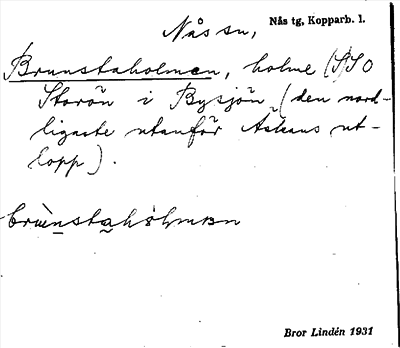 Nås sn, Nås tg, Kopparb. l.
Brunstaholmen, holme (SSO
Storön i Bysjön (den nord-
ligaste utanför Åskaus ut-
lopp).
Bror Lindén 1931